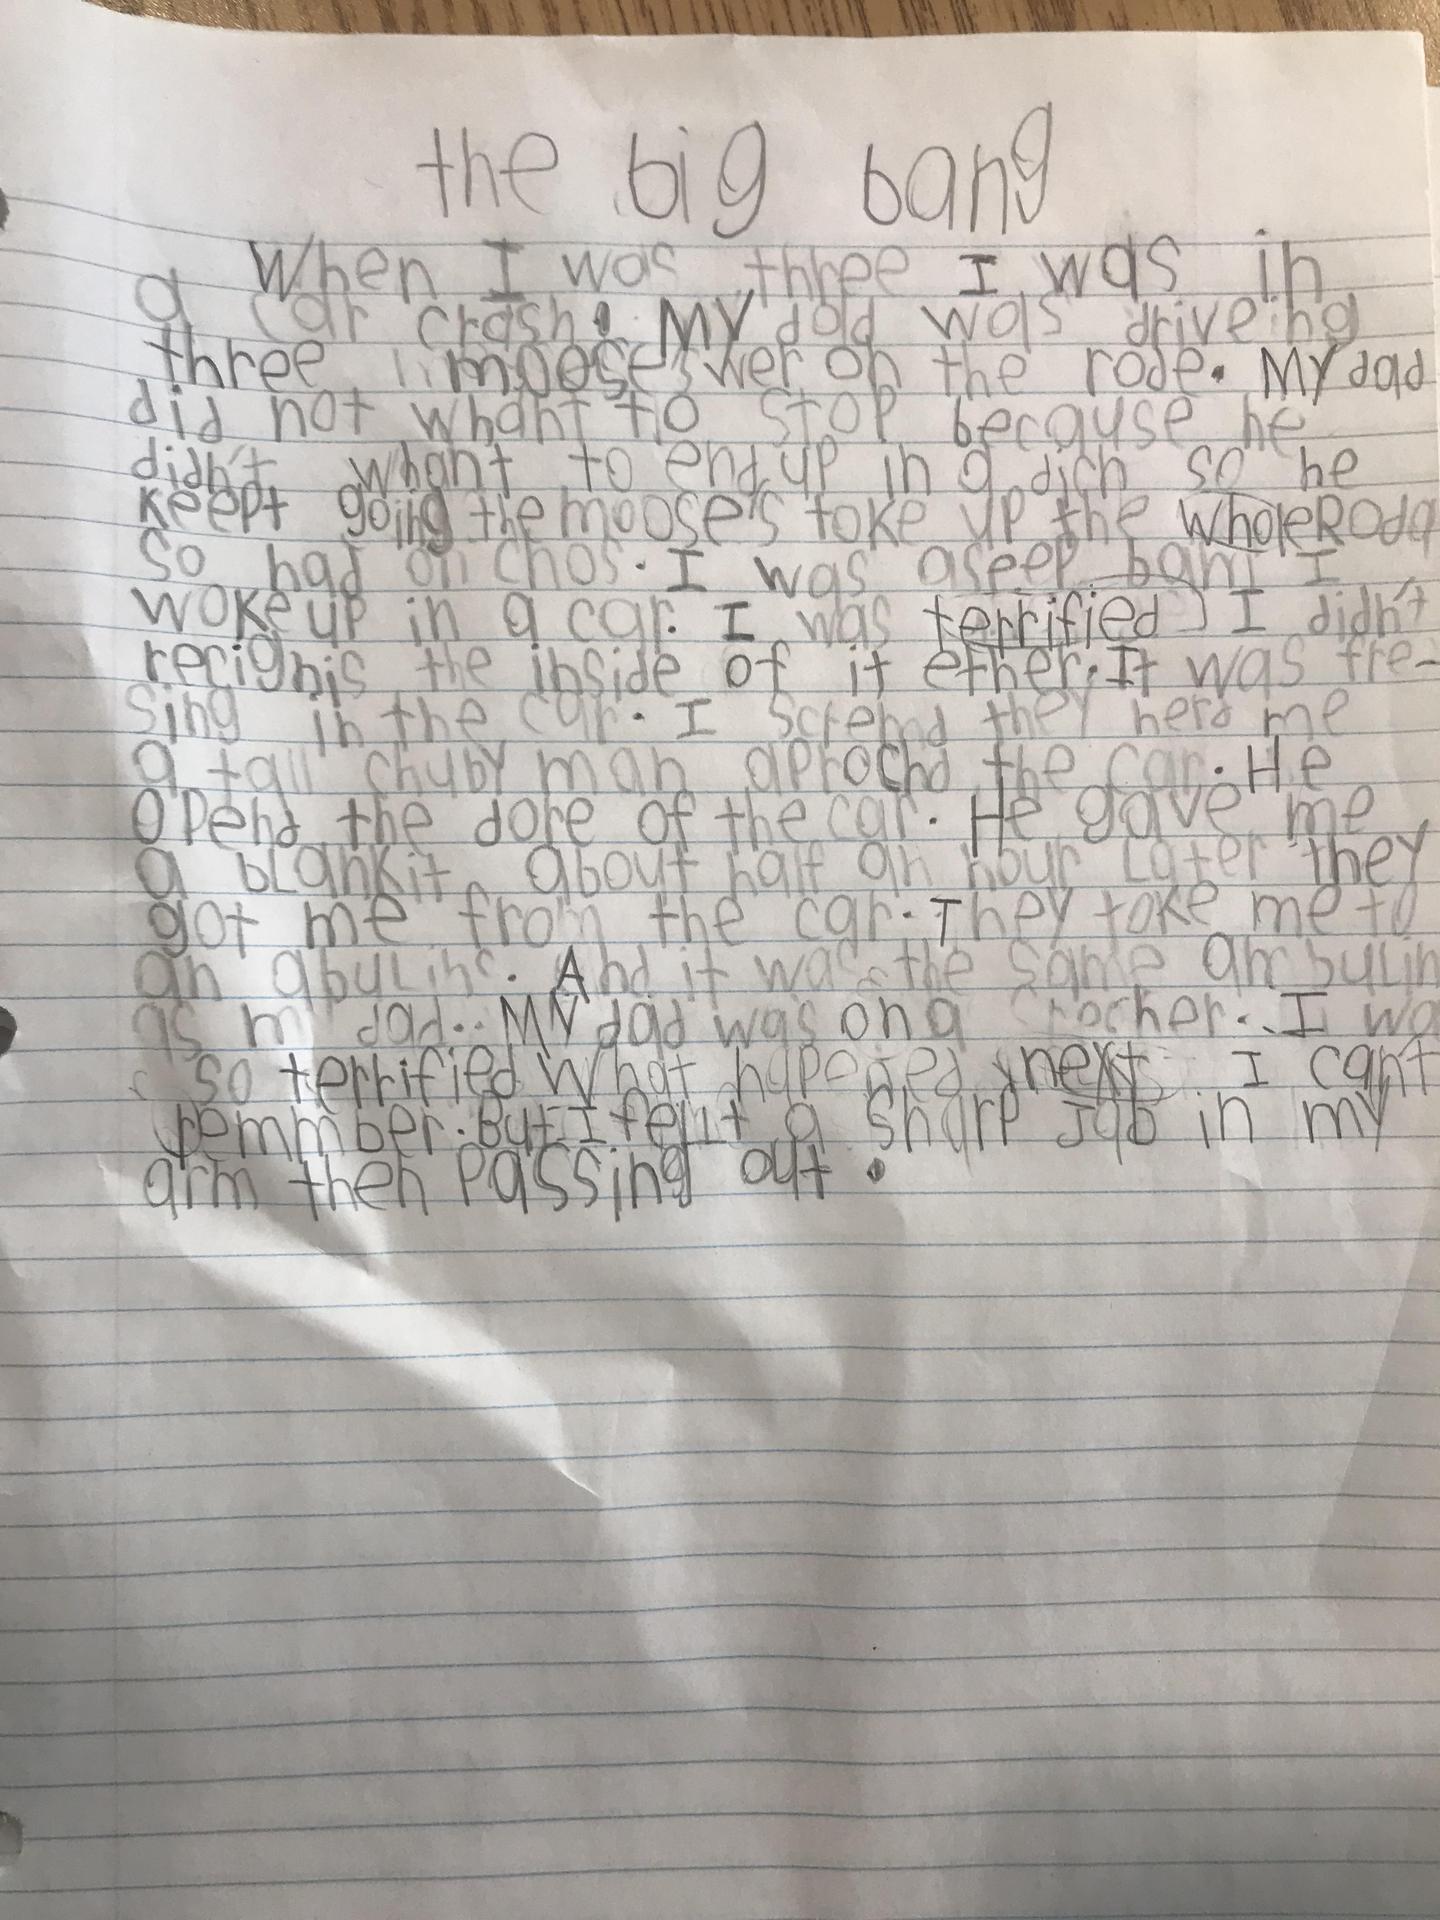 the big bang
When I was three I was in
a car crash. My dad was driveing
three mooses wer on the rode. My dad
did not whant to stop because he
didn't whant to end up in a dich so he
keept going the moose's toke up the whole Roda
so had on chos. I was aseep bam I
woke up in a car. I was terrified I didn't
recignis the inside of it ether. It was fre-
sing in the car. I scremd they herd me
a tall chuby man aprochd the car. He
opend the dore of the car. He gave me
a blankit about half an hour Later they
got me from the car. They toke me to
an abulinc. And it was the same ambulin
as m dad. My dad was on a I wa
so terrified What hapened next I can't
remmber. But I felt a sharp jab in my
arm then passing out.